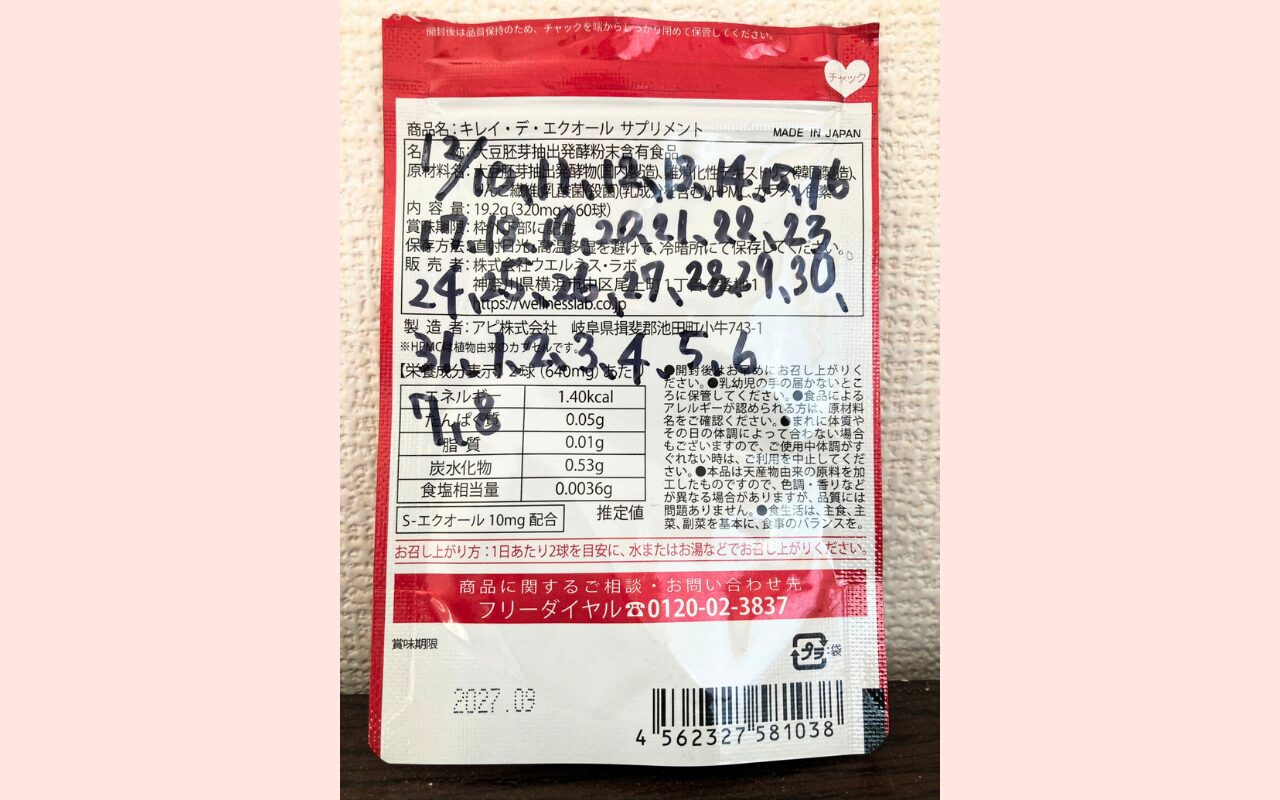 開封後は品質保持のため、チャックを端からしっかり閉めて保管してください。
チャック
商品名：キレイ・デ・エクオール サプリメント
MADE IN JAPAN
名 称：大豆胚芽抽出発酵粉末含有食品
原材料名：大豆胚芽抽出発酵物(国内製造)、難消化性デキストリン(韓国製造)、
りんご繊維、乳酸菌(殺菌)(乳成分を含む)/HPMC、カラメル色素
内 容 量：19.2g(320mg×60球)
賞味期限：枠外下部に記載
保存方法：直射日光、高温多湿を避けて、冷暗所にて保存してください。
販 売 者：株式会社ウエルネス・ラボ
神奈川県横浜市中区尾上町1丁目4番地1
https://wellnesslab.co.jp
製 造 者：アピ株式会社 岐阜県揖斐郡池田町小牛743-1
※HPMCは植物由来のカプセルです。
12/10、11、12、13、14、15、16
17、18、19、20、21、22、23
24、25、26、27、28、29、30、
31、1、2、3、4、5、6
7、8
【栄養成分表示】2球(640mg)あたり
エネルギー 1.40kcal
たんぱく質 0.05g
脂質 0.01g
炭水化物 0.53g
食塩相当量 0.0036g
S-エクオール 10mg 配合
推定値
●開封後はお早めにお召し上がりく
ださい。●乳幼児の手の届かないとこ
ろに保管してください。●食品による
アレルギーが認められる方は、原材料
名をご確認ください。●まれに体質や
その日の体調によって合わない場合
もございますので、ご使用中体調がす
ぐれない時は、ご利用を中止してくだ
さい。●本品は天産物由来の原料を加
工したものですので、色調・香りなど
が異なる場合がありますが、品質には
問題ありません。●食生活は、主食、主
菜、副菜を基本に、食事のバランスを。
お召し上がり方：1日あたり2球を目安に、水またはお湯などでお召し上がりください。
商品に関するご相談・お問い合わせ先
フリーダイヤル☎0120-02-3837
賞味期限
プラ：袋
2027.09
4 562327 581038